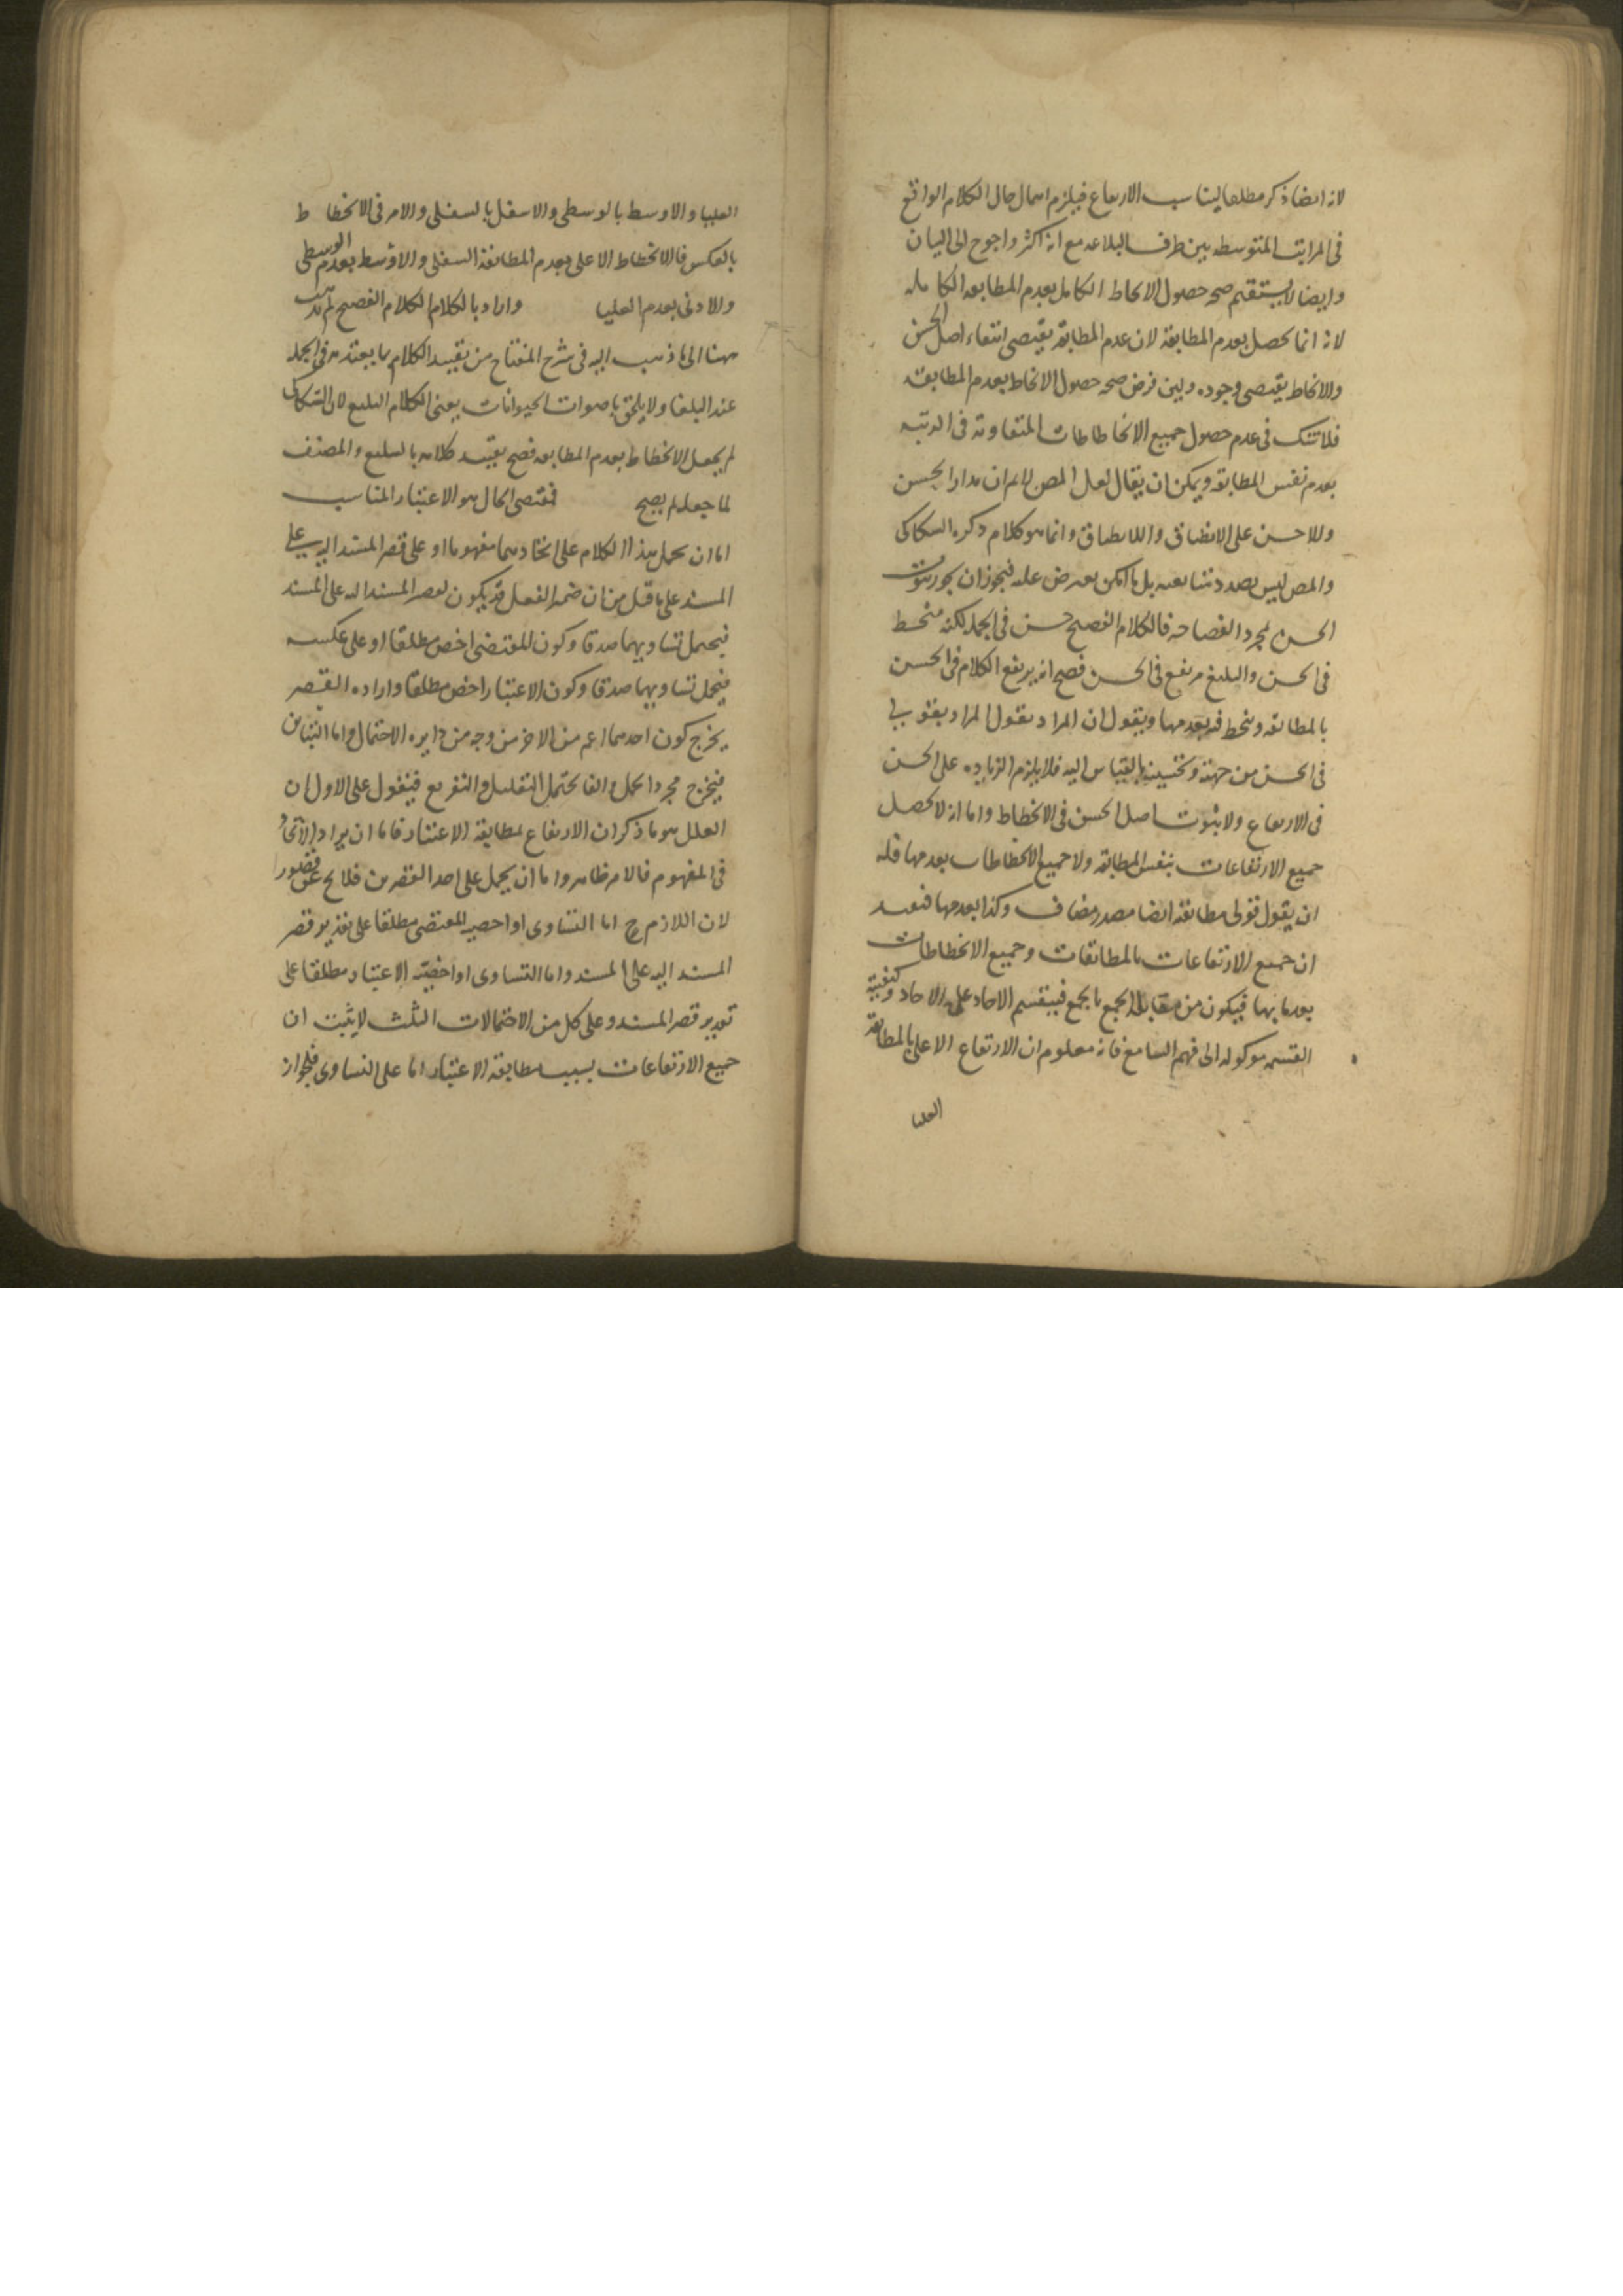 لانه ايضا ذكر مطلقا ليناسب الارتفاع فيلزم اهمال حال الكلام الواقع
فى المراتب المتوسطه بين طرف البلاغه مع انه اكثر واحوج الى البيان
وايضا لا يستقيم صحه حصول الانحطاط الكامل بعدم المطابقه الكامله
لانه انما يحصل بعدم المطابقة لان عدم المطابقة يقتضى انتفاء اصل الحسن
والانحطاط يقتضى وجوده ولين فرض صحه حصول الانحطاط بعدم المطابقة
فلا شك فى عدم حصول جميع الانحطاطات المتفاوته فى الرتبه
بعدم نفس المطابقه ويمكن ان يقال لعل المص ان مدار الحسن
وللاحسن على الانطباق واللا انطباق وانما هو كلام ذكره السكاكى
والمص ليس بصدد متابعته بل ما امكن يعرض عنه فيجوز ان يجوز ثبوت
الحسن لمجرد الفصاحه فالكلام الفصيح حسن فى الجمله لكنه منحط
فى الحسن والبليغ مرتفع فى الحسن فصح انه يرتفع الكلام فى الحسن
بالمطابقه وينحط فيه بعدمها ويقول ان المراد بقول المراد بقولى
فى الحسن من جهته وتحسينه بالقياس اليه فلا يلزم الزياده على الحسن
فى الارتفاع ولا ثبوت اصل الحسن فى الانحطاط واما انه لا يحصل
جميع الارتفاعات بنفس المطابقة ولا جميع الانحطاطات بعدمها فله
ان يقول قولى مطابقته ايضا مصدر مضاف وكذا بعدمها فيفيد
ان جميع الارتفاعات بالمطابقات وجميع الانحطاطات
بعدمها فيكون من مقابلة الجمع بالجمع فينقسم الاحاد على الاحاد وكيفية
القسمه موكوله الى فهم السامع فانه معلوم ان الارتفاع الاعلى بالمطابقة
العليا
العليا والاوسط بالوسطى والاسفل بالسفلى والامر فى الانحطاط
بالعكس فالانحطاط الاعلى بعدم المطابقة السفلى والاوسط بعدم الوسطى
والادنى بعدم العليا واراد بالكلام الكلام الفصيح لم يذهب
ههنا الى ما ذهب اليه فى شرح المفتاح من تقييد الكلام بما يعتد به فى الجمله
عند البلغا ولا يلحق باصوات الحيوانات يعنى الكلام البليغ لان السكاكى
لم يجعل الانحطاط بعدم المطابقه فصح تقييد كلامه بالبليغ والمصنف
لما جعله لم يصح فمقتضى الحال هو الاعتبار المناسب
اما ان يحمل هذا الكلام على اتحادهما مفهوما او على قصر المسند اليه على
المسند على ما قيل من ان ضمير الفصل قد يكون لقصر المسند اليه على المسند
فيحمل تساويهما صدقا وكون المقتضى اخص مطلقا او على عكسه
فيحمل تساويهما صدقا وكون الاعتبار اخص مطلقا واراده القصر
يخرج كون احدهما اعم من الاخر من وجه من دايره الاحتمال واما التباين
فيخرج مجرد الحمل والفا يحتمل التعليل والتفريع فنقول على الاول ان
المعلل هو ما ذكر ان الارتفاع بمطابقة الاعتبار فاما ان يراد الاتحاد
فى المفهوم فالامر ظاهر واما ان يحمل على احد القصرين فلا يخ عن قصور
لان اللازم ح اما التساوى او اخصيه المقتضى مطلقا على تقدير قصر
المسند اليه على المسند واما التساوى او اخصيّه الاعتبار مطلقا على
تقدير قصر المسند وعلى كل من الاحتمالات الثلث لا يثبت ان
جميع الارتفاعات بسبب مطابقة الاعتبار اما على التساوى فلجواز